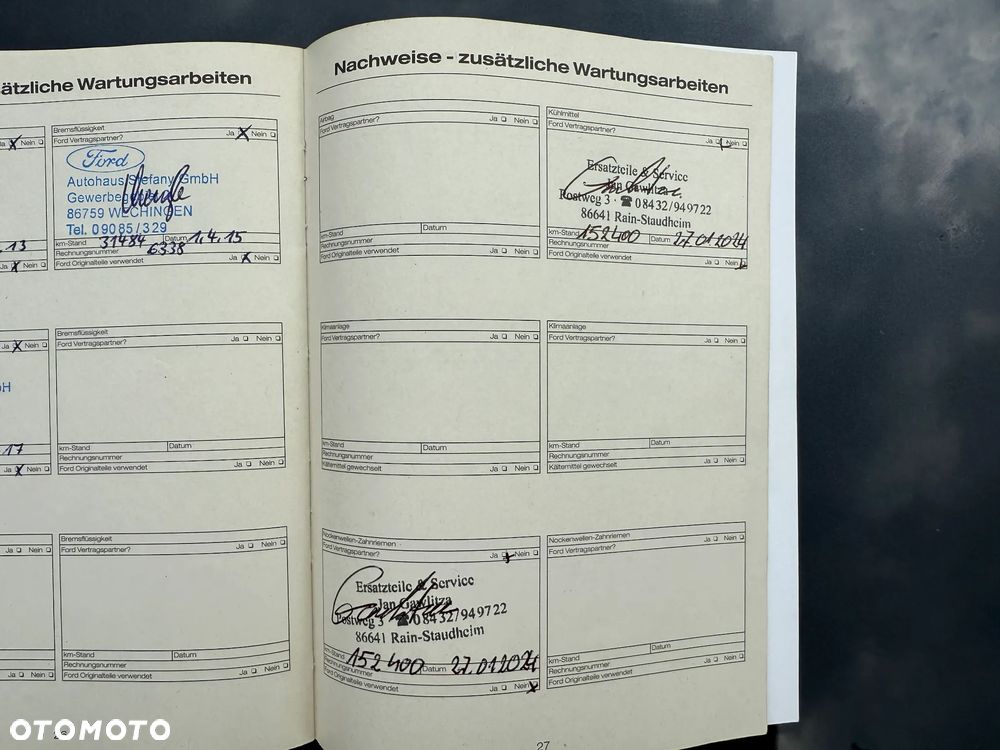 sätzliche Wartungsarbeiten
Ja Nein
Bremsflüssigkeit
Ford Vertragspartner? Ja Nein
Ford
Autohaus Stefany GmbH
86759 WECHINGEN
Tel. 09085/329
km-Stand 31484 Datum 1.4.15
Rechnungsnummer 6338
Ford Originalteile verwendet Ja Nein
13
Ja Nein
Ja Nein
bH
17
Ja Nein
Bremsflüssigkeit
Ford Vertragspartner? Ja Nein
km-Stand Datum
Rechnungsnummer
Ford Originalteile verwendet Ja Nein
Ja Nein
Ja Nein
Bremsflüssigkeit
Ford Vertragspartner? Ja Nein
km-Stand Datum
Rechnungsnummer
Ford Originalteile verwendet Ja Nein
Nachweise - zusätzliche Wartungsarbeiten
Airbag
Ford Vertragspartner? Ja Nein
km-Stand Datum
Rechnungsnummer
Ford Originalteile verwendet Ja Nein
Kühlmittel
Ford Vertragspartner? Ja Nein
Ersatzteile & Service
Jan Gawlitza
Postweg 3 · ☎ 08432/949722
86641 Rain-Staudheim
km-Stand 152400 Datum 27.01.2024
Rechnungsnummer
Ford Originalteile verwendet Ja Nein
Klimaanlage
Ford Vertragspartner? Ja Nein
km-Stand Datum
Rechnungsnummer
Kältemittel gewechselt Ja Nein
Klimaanlage
Ford Vertragspartner? Ja Nein
km-Stand Datum
Rechnungsnummer
Kältemittel gewechselt Ja Nein
Nockenwellen-Zahnriemen
Ford Vertragspartner? Ja Nein
Ersatzteile & Service
Jan Gawlitza
Postweg 3 ☎ 08432/949722
86641 Rain-Staudheim
km-Stand 152400 Datum 27.01.2024
Rechnungsnummer
Ford Originalteile verwendet Ja Nein
Nockenwellen-Zahnriemen
Ford Vertragspartner? Ja Nein
km-Stand Datum
Rechnungsnummer
Ford Originalteile verwendet Ja Nein
27
OTOMOTO